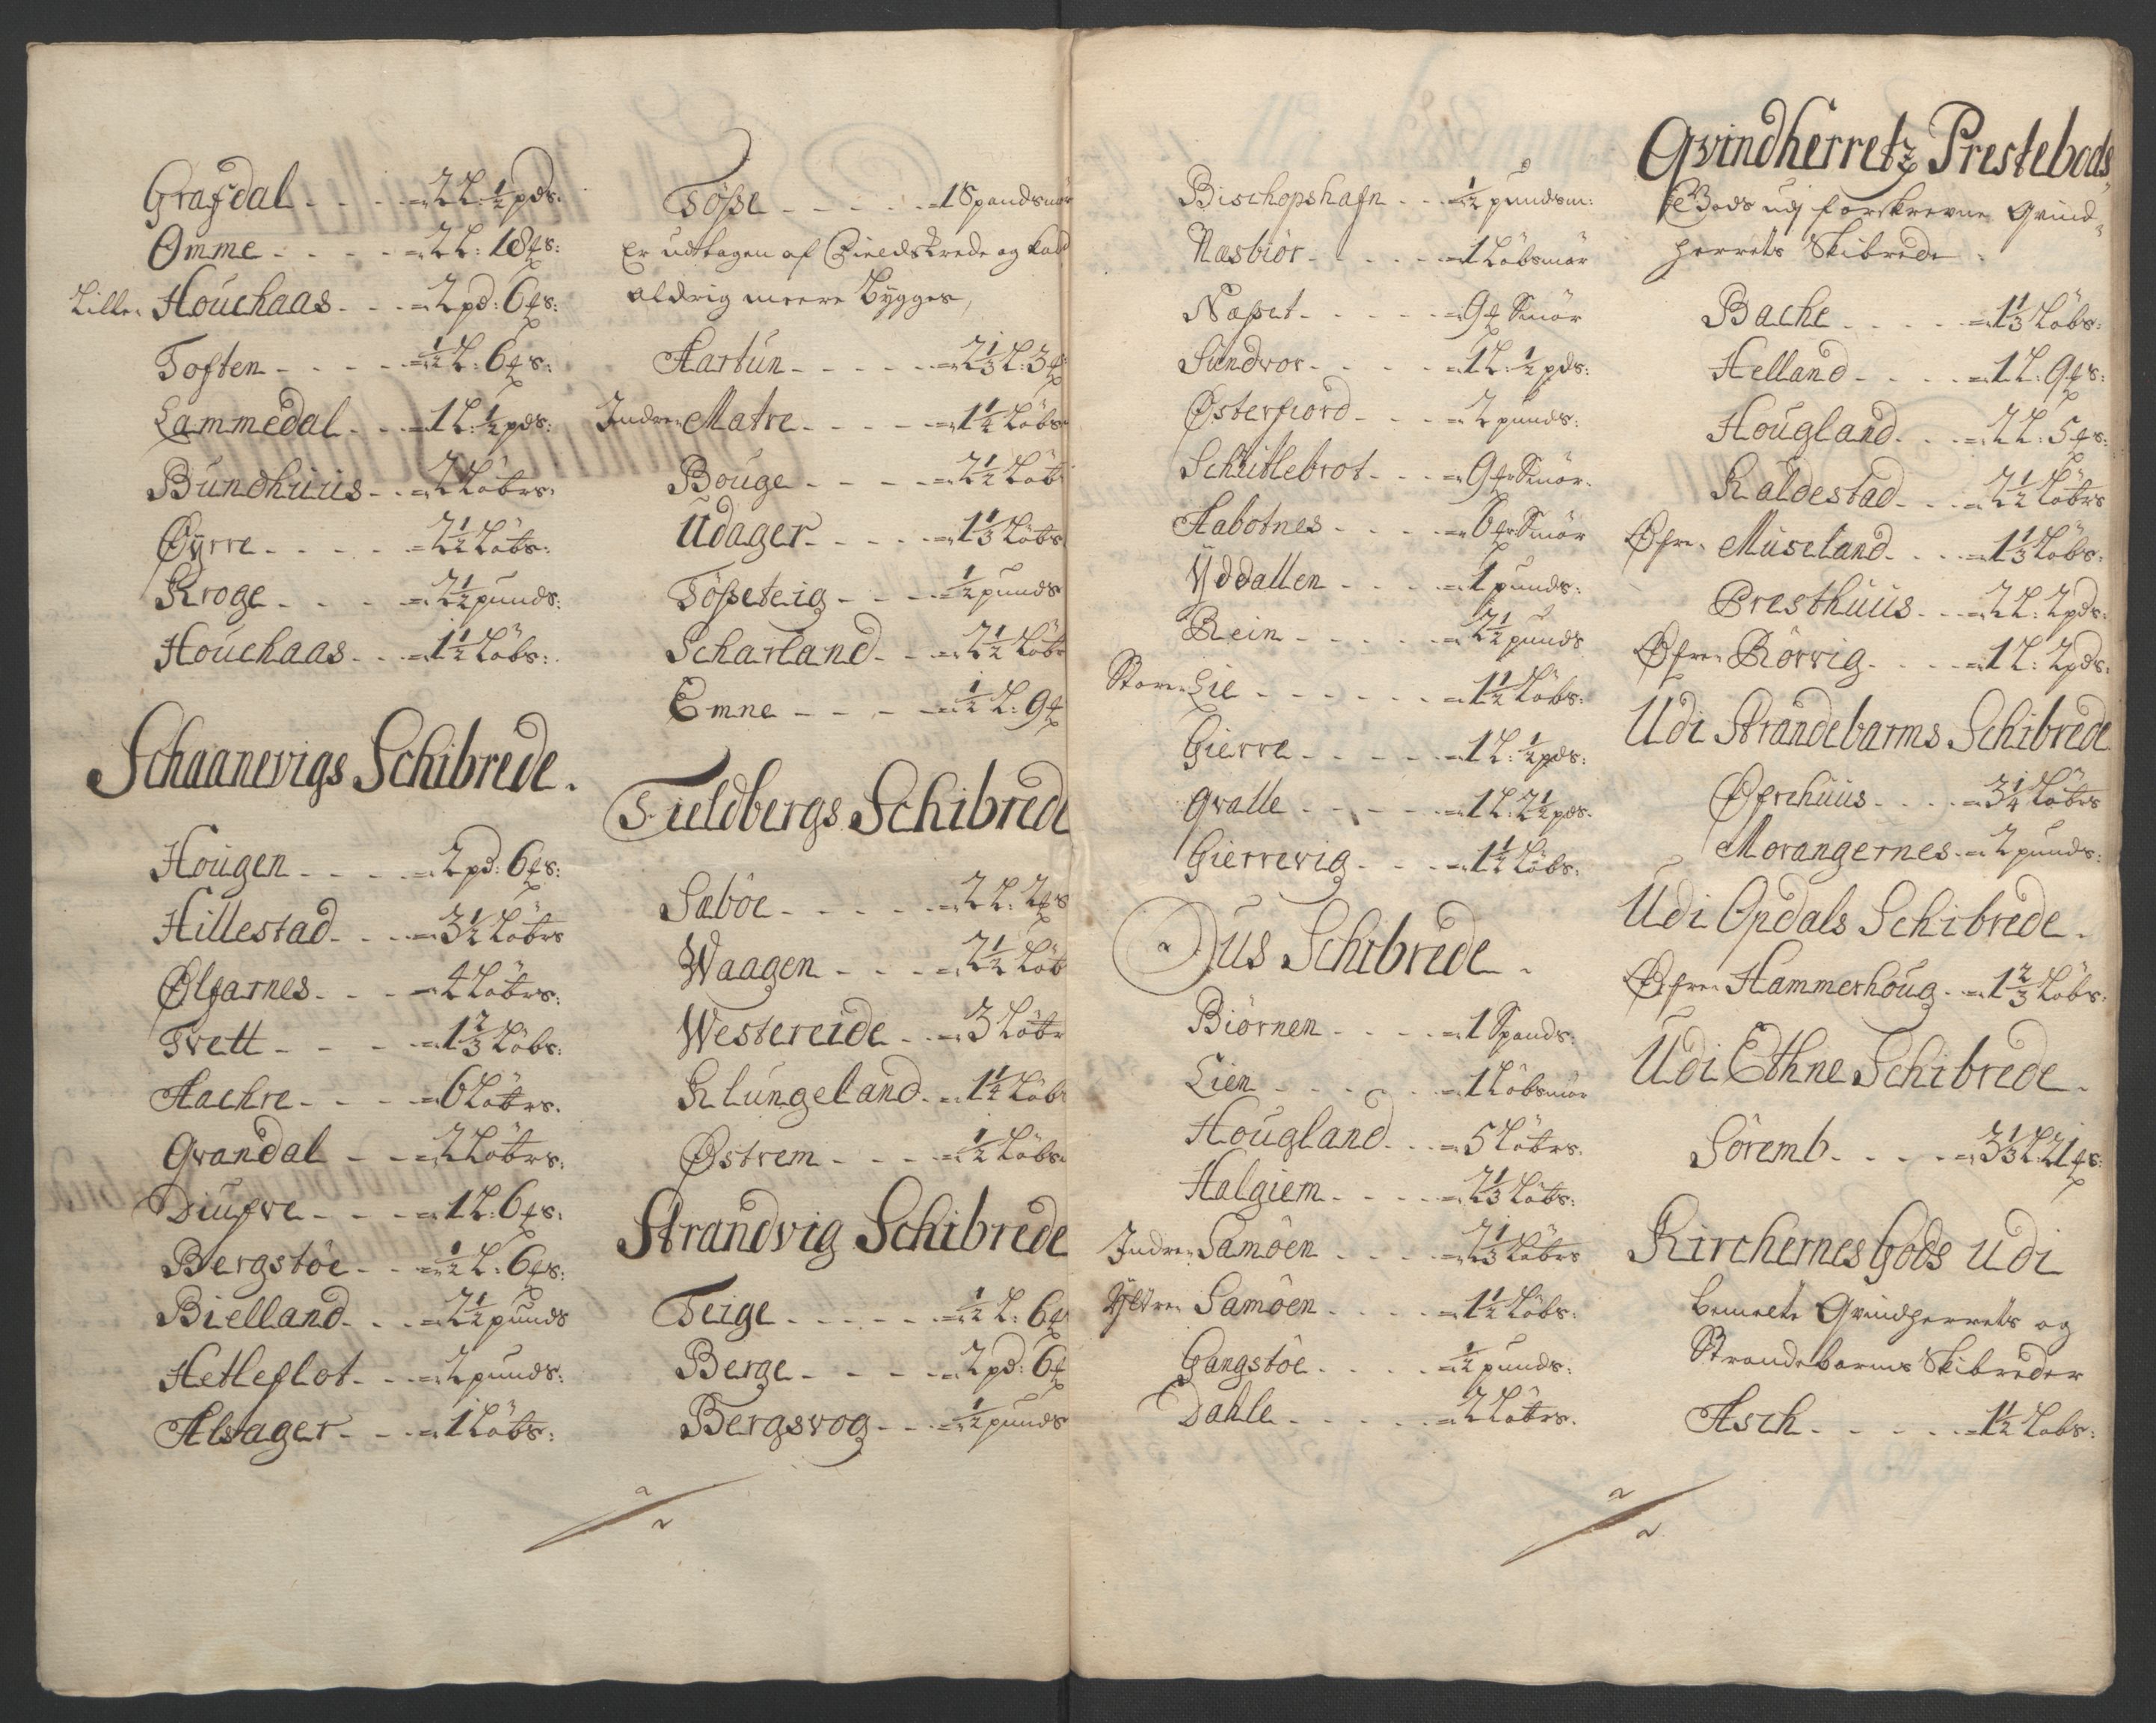 Grafdal - - - - 2 L: ½ pds:
Omme - - - - 2 L: 18 ℔s:
Lille Houchaas - - - 2 pd: 6 ℔s:
Toften - - - - ½ L: 6 ℔s:
Lammedal - - - 1 L: ½ pds:
Bundhuus - - 2 Löbrs:
Øyrre - - - - 2½ Löbs:
Kroge - - - - 2½ punds:
Houchaas - - - 1½ Löbs:
Schaanevigs Schibrede.
Hougen - - - - 2 pd: 6 ℔s:
Hillestad - - - 3½ Löbrs
Ølfarnes - - - 4 Löbrs:
Tvett - - - 1⅔ Löbs:
Aachre - - - 6 Löbrs.
Qvandal - - 2 Löbrs:
Diufve - - - 1 L: 6 ℔s:
Bergstöe - - ½ L: 6 ℔s:
Bielland - - - 2½ punds
Hetleflot - - 2 punds:
Alsager - - - 1 Löbs:
Töße - - - - 1 Spandsmör
Er udtagen af Fieldskrede og kand
aldrig meere bygges,
Aartun - - - - - 2⅓ L: 3 ℔
Indre Matre - - - - 1¼ Löbs
Bouge - - - - 2½ Löb
Udager - - - - 1⅓ Löbs
Tößeteig - - - ½ punds
Scharland - - 2½ Löbr
Emne - - - - ½ L: 9 ℔
Fieldbergs Schibrede
Saböe - - - - 2 L: 2 ℔s
Waagen - - - 2½ Löb
Westereide - - 3 Löbr
Klungeland - - 1¼ Löbs
Østrem - - - ½ Löbs
Strandvig Schibrede
Teige - - - - - ½ L: 6 ℔
Berge - - - - 2 pd: 6 ℔
Bergsvog - - - ½ punds
Bischopshafn - - ½ pundsm:
Næsbiör - - - - 1 Löbsmör
Næset - - - - - 9 ℔ Smör
Sundvor - - - - 1 L: ½ pds:
Østerfiord - - - - 2 punds:
Schiitlebrot - - - 9 ℔ Smör.
Habotnes - - - - 6 ℔ Smör
Yddallen - - - - 1 punds:
Rein - - - - - 2½ punds
Store Lie - - - - - - 1½ Löbs:
Gierre - - - - - 1 L: ½ pds:
Qvalle - - - - - 1 L: 2½ pds.
Gierrevig - - - - 1½ Löbs:
Ous Schibrede.
Biörnen - - - - 1 Spands:
Lien - - - - - 1 Löbsmör
Hougland - - - 5 Löbrs.
Halgiem - - - - 2⅓ Löbs:
Indre Samöen - - - - 2⅓ Löbrs
Yttre Samöen - - - - 1½ Löbs:
Gangstöe - - - - ½ punds:
Dahle - - - - - 2 Löbrs.
Qvindherretz Prestebods
Gods udj forskrevne Qvind-
herrets Skibrede.
Bache - - - - - 1⅓ Löbs:
Helland - - - - 1 L: 9 ℔s:
Hougland - - - 2 L: 5 ℔s:
Kaldestad - - - 2½ Löbrs
Øfre Museland - - - 1⅓ Löbs:
Presthuus - - - 2 L: 2 pds:
Øfre Rörvig - - - - 1 L: 2 pds:
Udi Strandebarms Schibrede
Øfrehuus - - - - 3¼ Löbrs
Morangernes - - 2 punds:
Udi Opdals Schibrede.
Øfre Hammerhoug - - 1⅔ Löbs:
Udi Ethne Schibrede.
Söremb - - - - 3⅓ L: 21 ℔s:
Kirchernes Gods udi
bemelte Qvindherrets og
Strandebarms Skibreder
Asch - - - - - 1½ Löbs: